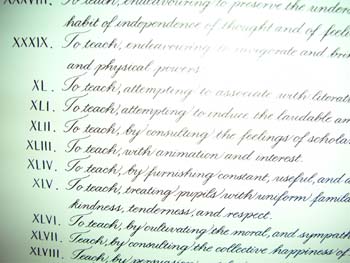 XXXVIII. To teach, endeavouring to preserve the
habit of independence of thought and of
XXXIX. To teach, endeavouring to invigorate and
and physical powers
XL. To teach, attempting to associate with
XLI. To teach, attempting to induce the laudable
XLII. To teach, by consulting the feelings of
XLIII. To teach, with animation and interest.
XLIV. To teach, by furnishing constant, useful, and
XLV. To teach, treating pupils with uniform
kindness, tenderness, and respect.
XLVI. To teach, by cultivating the moral, and
XLVII. Teach, by consulting the collective happiness of
XLVIII. Teach, by persuasion